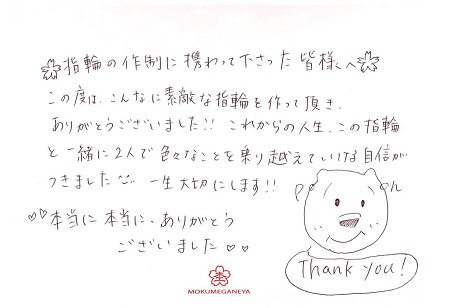 指輪の作制に携わって下さった皆様へ
この度は、こんなに素敵な指輪を作って頂き、
ありがとうございました!! これからの人生、この指輪
と一緒に2人で色々なことを乗り越えていける自信が
つきました 一生大切にします!!
♡♡本当に本当に、ありがとう
ございました♡♡
Thank you!
MOKUMEGANEYA